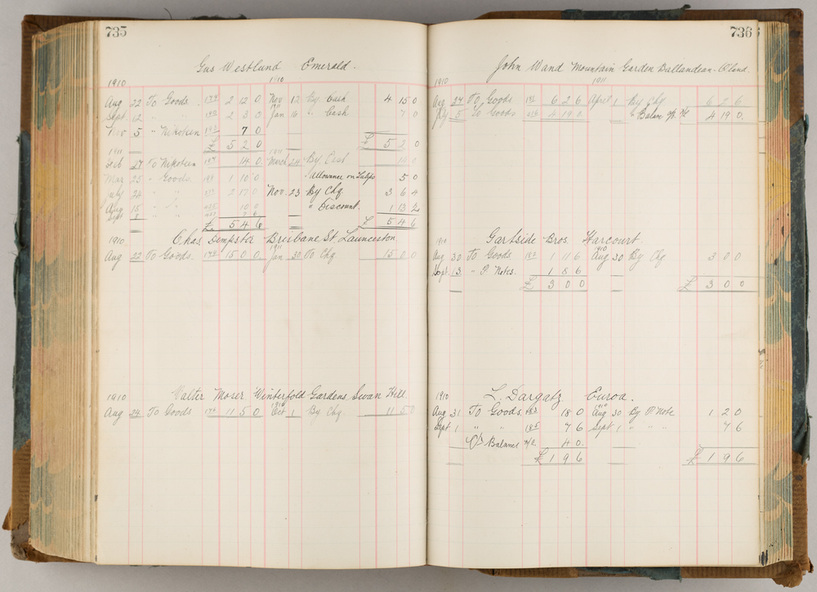 735
Gus Westlund Emerald.
1910 1910
Aug 22 To Goods 2 12 0 Nov 12 By Cash 4 15 0
Sept 12 " " 2 3 0 Jan 6 " Cash 7 0
Nov 5 - Nikoteen 7 0
£ 5 2 0 £ 5 2 0
1911
Feb 27 To Nikoteen 14 0 March 24 By Cash 14 0
Mar 25 - Goods 1 10 0 Allowance on Tulips 5 0
July 24 " " 2 17 0 Nov. 23 By Chq 3 6 4
Aug 15 " " " Discount 1 13 2
Sept
£ 5 4 6 £ 5 4 6
1910 Chas Dempster Brisbane St Launceston
1911
Aug 22 To Goods 15 0 0 Jan To Chq 15 0 0
1910 Walter Moser Winterfold Gardens Swan Hill
1910
Aug 23 To Goods 1 15 0 Oct 1 By Chq 1 15 0
736
John Wand Mountain Garden Ballandean Q'land
1910 1911
Aug 24 To Goods 6 2 6 April 1 By Chq 6 2 6
5 To Goods 4 19 0 " Balance 4 19 0
Gartside Bros. Harcourt
1910 1910
Aug 30 To Goods 1 11 6 Aug 30 By Chq 3 0 0
Sept 13 - P Notes. 1 8 6
£ 3 0 0 £ 3 0 0
1910 L. Dargatz Euroa.
1910
Aug 31 To Goods 18 0 Aug 30 By P Note 1 2 0
Sept 1 " " 7 6 Sept 1 " " " 7 6
Balance 4 0
£ 1 9 6 £ 1 9 6